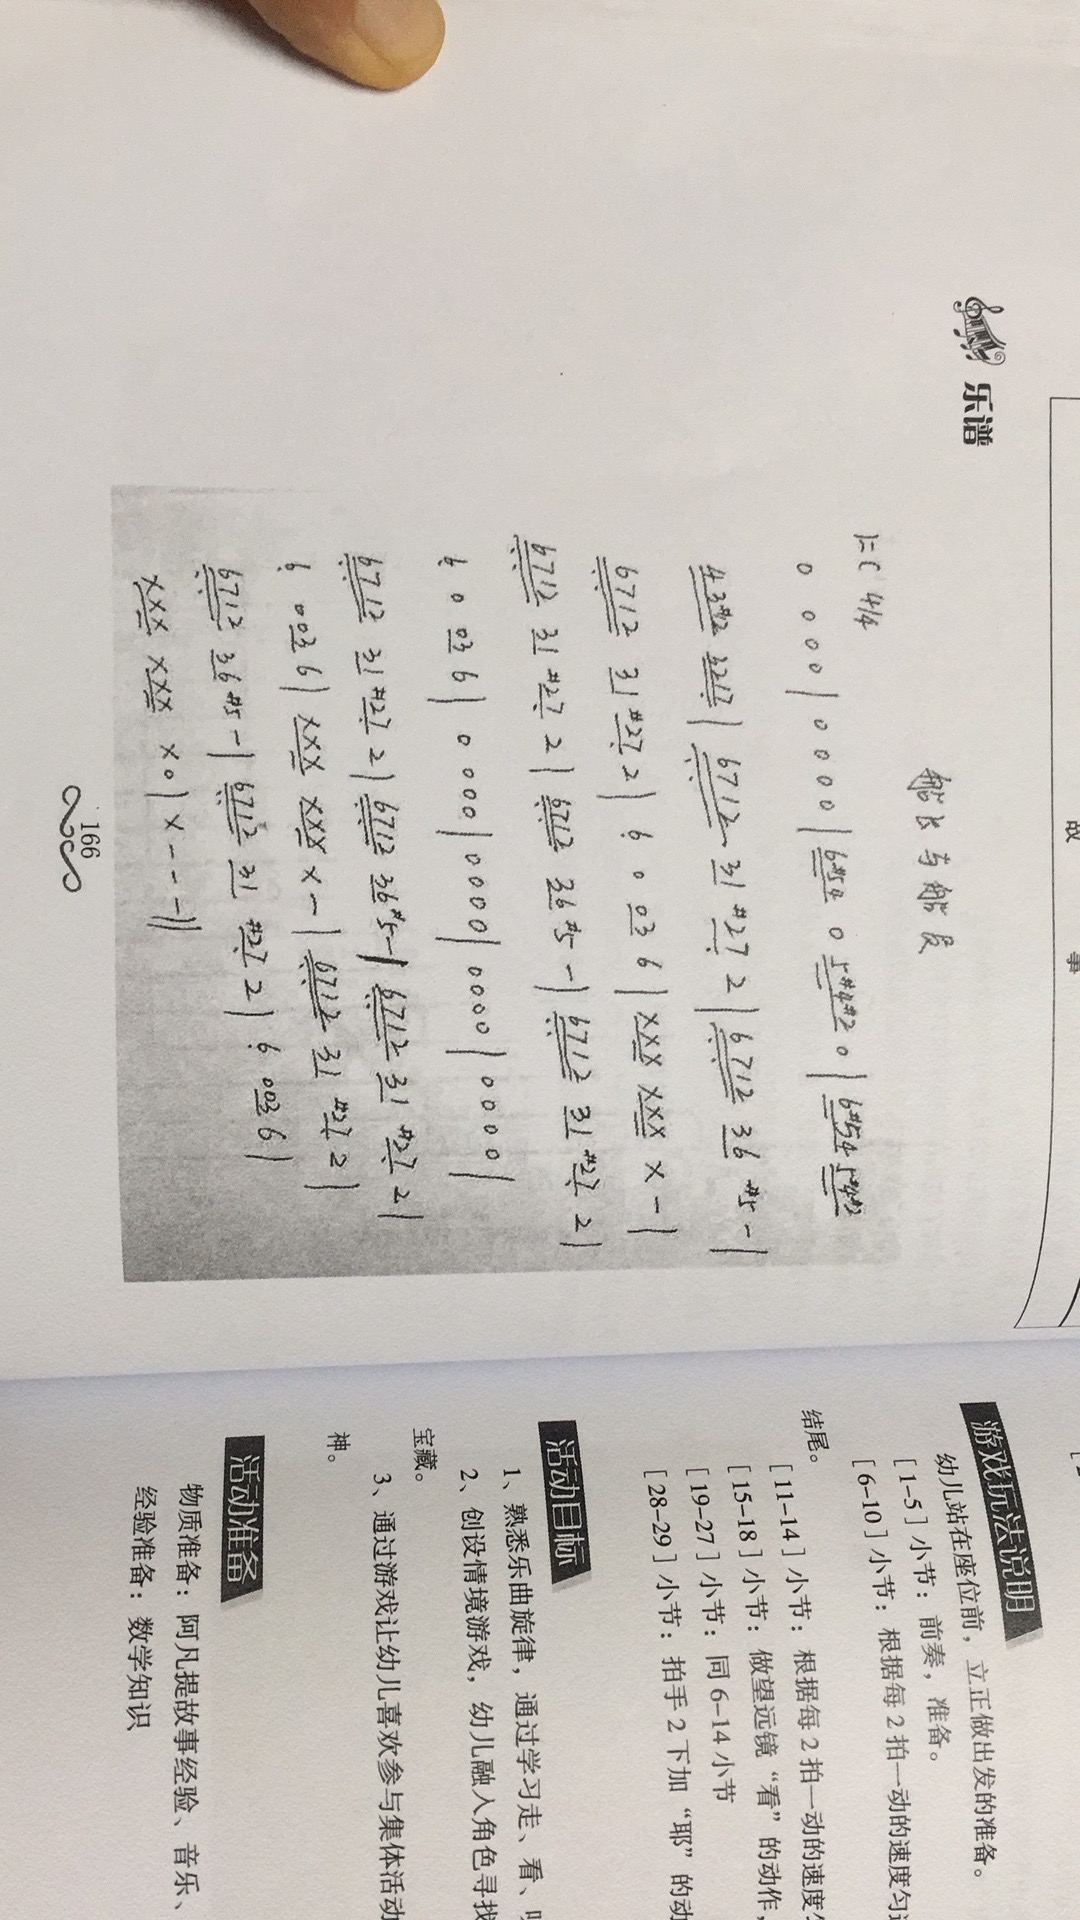 乐谱
船长与船员
1=C 4/4
0 0 0 0 | 0 0 0 0 | 6#54 0 5#4#2 0 | 6#54 5#4#2
43#2 3217 | 6712 31 #27 2 | 6712 36 #5 - |
6712 31 #27 2 | 6 0 03 6 | XXX XXX X - |
6712 31 #27 2 | 6712 36 #5 - | 6712 31 #27 2 |
6 0 03 6 | 0 0 0 0 | 0 0 0 0 | 0 0 0 0 | 0 0 0 0 |
6712 31 #27 2 | 6712 36 #5 - | 6712 31 #27 2 |
6 0 03 6 | XXX XXX X - | 6712 31 #27 2 |
6712 36 #5 - | 6712 31 #27 2 | 6 0 03 6 |
XXX XXX X 0 | X - - - ||
166
故
事
游戏玩法说明
幼儿站在座位前，立正做出发的准备。
[1-5] 小节：前奏，准备。
[6-10] 小节：根据每2拍一动的速度匀
[11-14] 小节：根据每2拍一动的速度
[15-18] 小节：做望远镜“看”的动作，
[19-27] 小节：同6-14小节
[28-29] 小节：拍手2下加“耶”的动
结尾。
活动目标
1、熟悉乐曲旋律，通过学习走、看、
2、创设情境游戏，幼儿融入角色寻找
宝藏。
3、通过游戏让幼儿喜欢参与集体活动
神。
活动准备
物质准备：阿凡提故事经验、音乐、
经验准备：数学知识